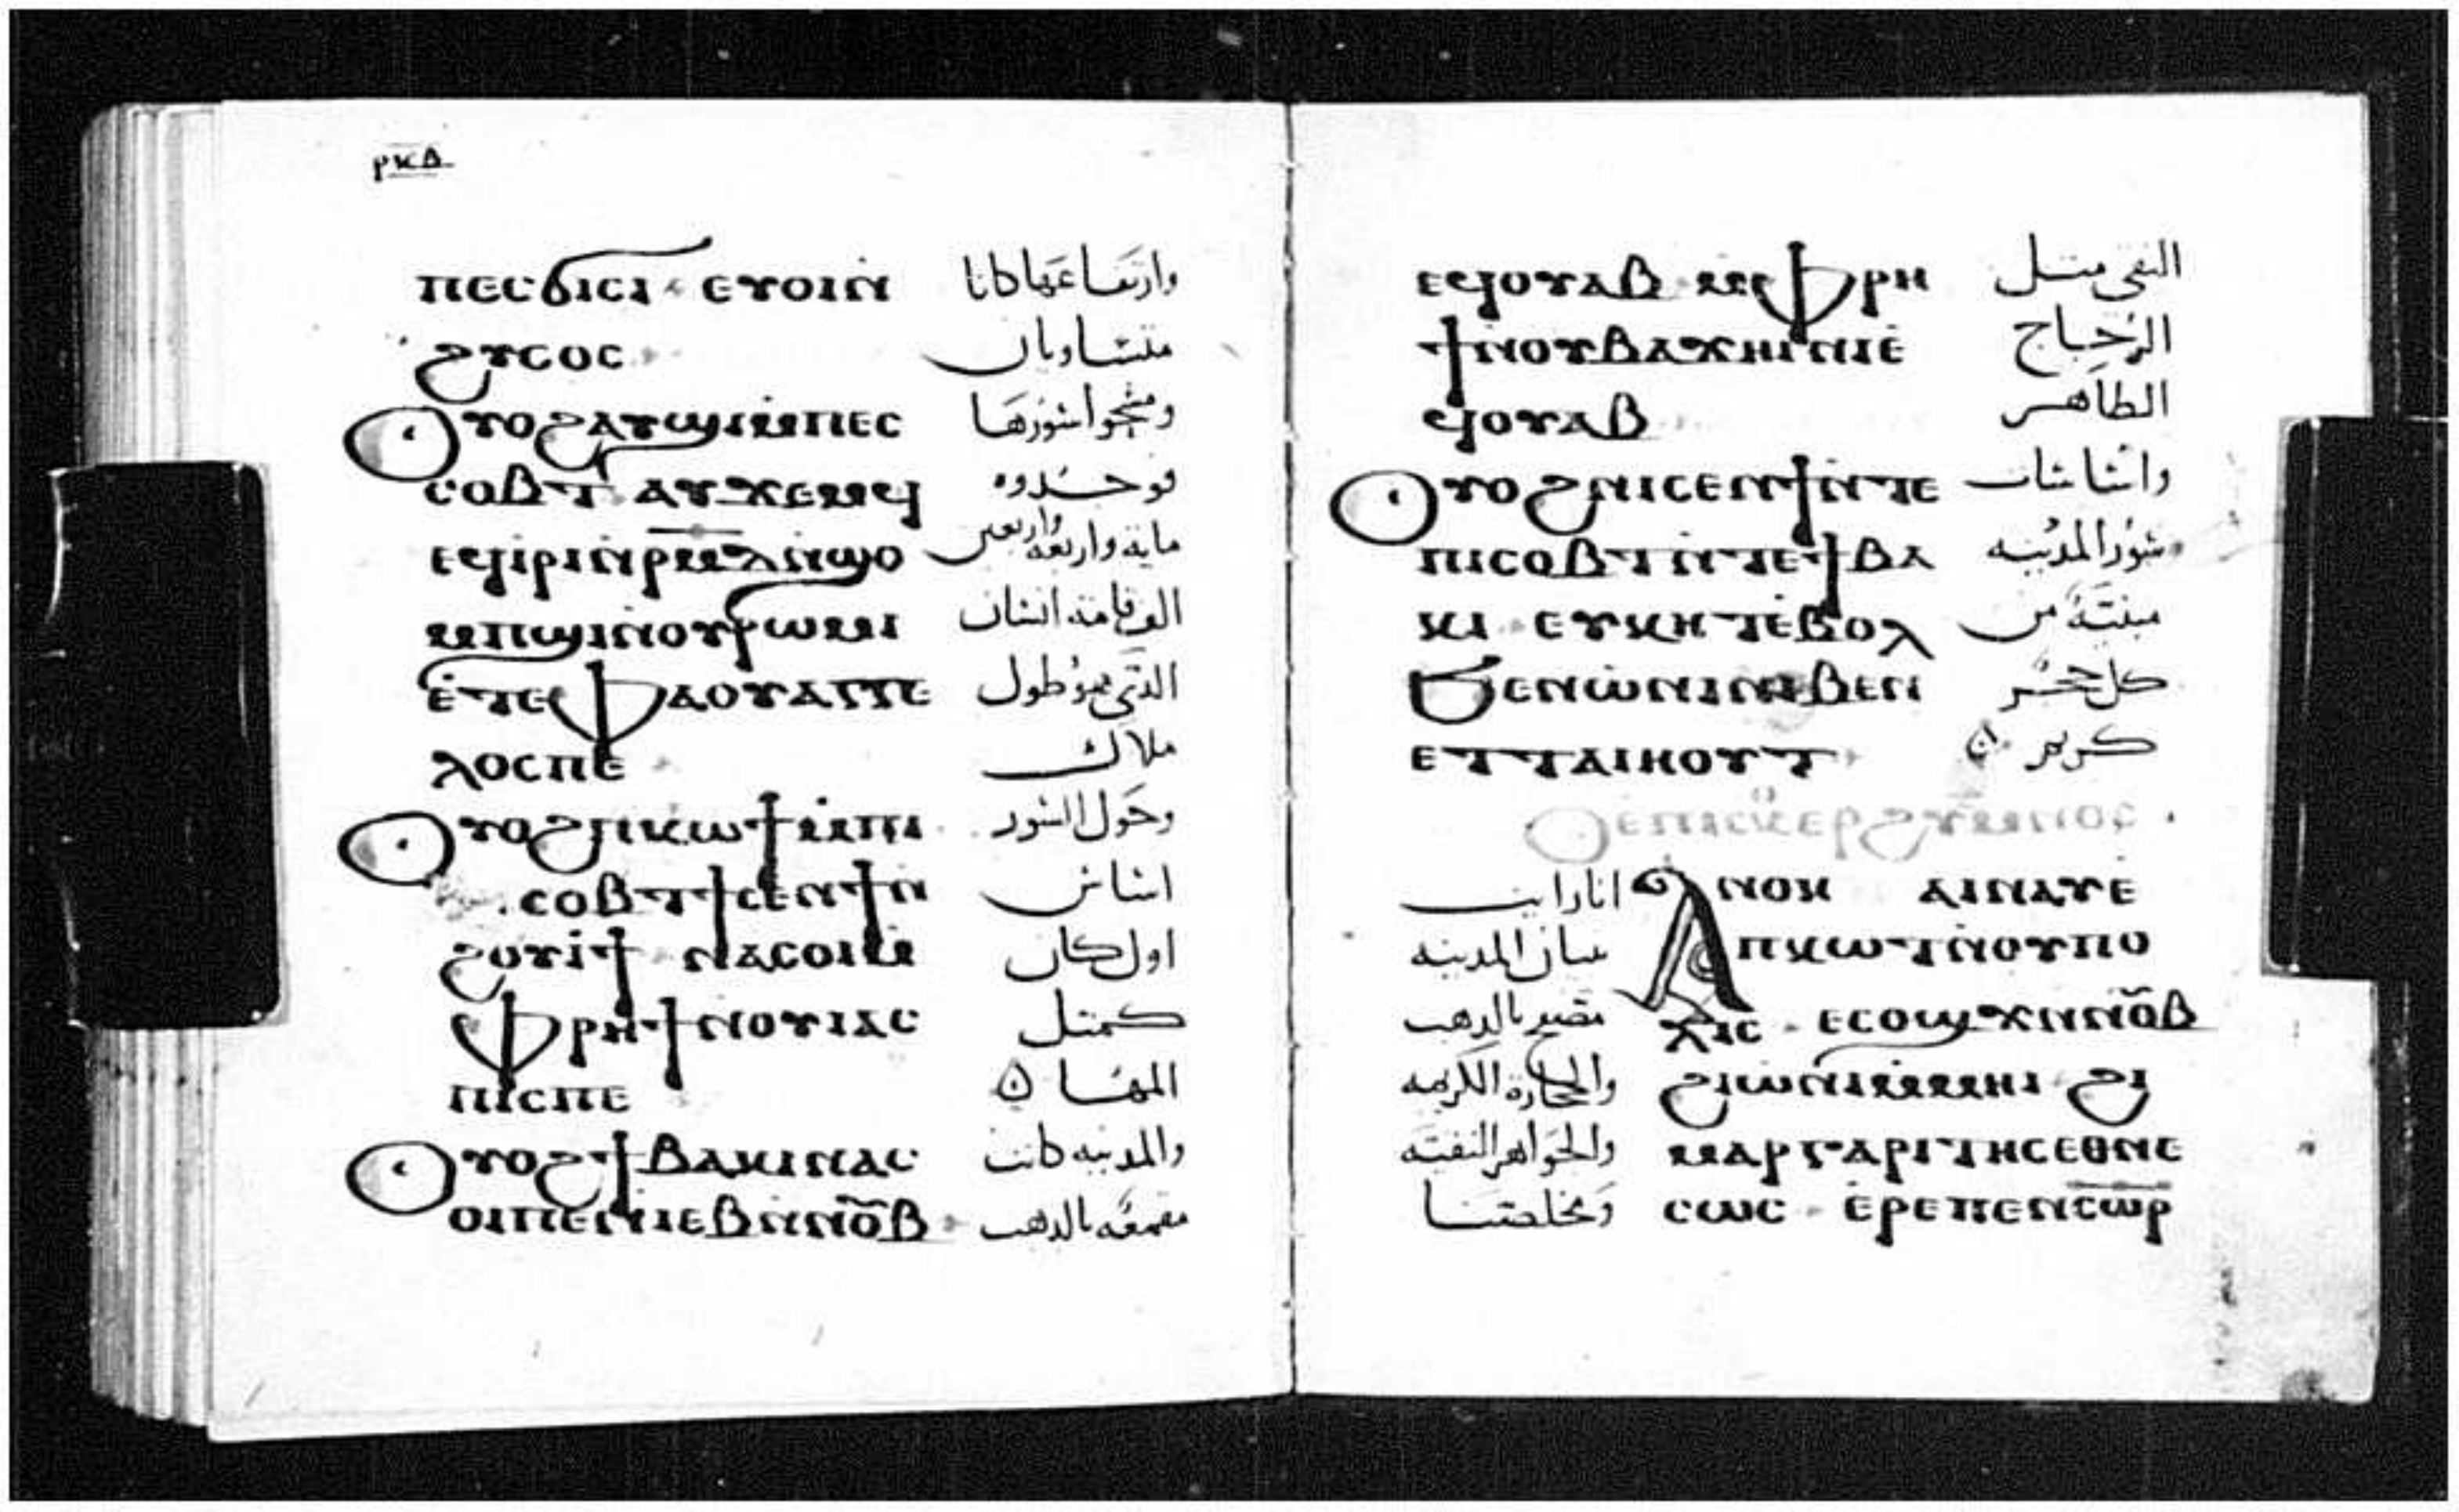 ⲣⲕⲇ
ⲡⲉⲥϭⲓⲥⲓ ⲉⲩⲟⲓⲛ̀ وارتفاعها كانا
ϩⲩⲥⲟⲥ متساويان
ⲟⲩⲟϩⲁⲩϣⲓⲙ̀ⲡⲉⲥ ومسحوا سورها
ⲥⲟⲃⲧ ⲁⲩϫⲉⲙϥ فوجدوه
ⲉϥⲓⲣⲓⲛ̀ⲣⲙⲇⲛ̀ϣⲟ مايه واربعه واربعين
ⲙⲡϣⲓⲛⲟⲩⲣⲱⲙⲓ الف قامة انسان
ⲉ̀ⲧⲉⲫⲁⲟⲩⲁⲅⲅⲉ الذي هو طول
ⲗⲟⲥⲡⲉ ملاك
ⲟⲩⲟϩⲡⲕⲱϯⲙ̀ⲡⲓ وحول السور
ⲥⲟⲃⲧϯⲥⲉⲛϯⲛ̀ اساس
ϩⲟⲩⲓ̀ϯ ⲛⲁⲥⲟⲓⲙ̀ اول كان
ⲫⲣⲏϯⲛⲟⲩⲓⲁⲥ كمثل
ⲡⲓⲥⲡⲉ المها
ⲟⲩⲟϩϯⲃⲁⲕⲓⲛⲁⲥ والمدينه كانت
ⲟⲓⲡⲉⲛⲓⲉⲃⲛⲛⲟ̅ⲃ̅ مقمعه بالذهب
ⲉϥⲟⲩⲁⲃ ⲙⲫⲣⲏ النقي مثل
ϯⲛⲟⲩⲃⲁϫⲏⲓⲛⲓⲉ الزجاج
ϥⲟⲩⲁⲃ الطاهر
ⲟⲩⲟϩⲛⲓⲥⲉⲛϯⲛⲧⲉ واساسات
ⲡⲓⲥⲟⲃⲧⲓⲛⲧⲉϯⲃⲁ سور المدينه
ⲕⲓ ⲉⲩⲕⲏⲧⲉ̀ⲃⲟⲗ مبنية من
ϧⲉⲛⲱ̀ⲛⲓⲛⲓⲃⲉⲛ كل حجر
ⲉⲧⲧⲁⲓⲏⲟⲩⲧ كريم
ⲑⲉⲡⲓⲥⲕⲉⲣϩⲩⲙⲛⲟⲥ
ⲁⲛⲟⲕ ⲁⲓⲛⲁⲩⲉ̀ انا رايت
ⲡⲕⲱⲧⲛ̀ⲟⲩⲡⲟ بنيان المدينه
ⲗⲓⲥ ⲉⲥⲟϣϫⲛⲛⲟ̅ⲃ̅ بالذهب
ϩⲓⲱⲛⲓⲙ̀ⲙⲏⲓ ϩⲓ والحجارة الكريمه
ⲙⲁⲣⲅⲁⲣⲓⲧⲏⲥⲉⲑⲛⲉ والجواهر
ⲥⲱⲥ ⲉ̀ⲣⲉⲡⲉⲛⲥ̅ⲱ̅ⲣ̅ ومخلصنا